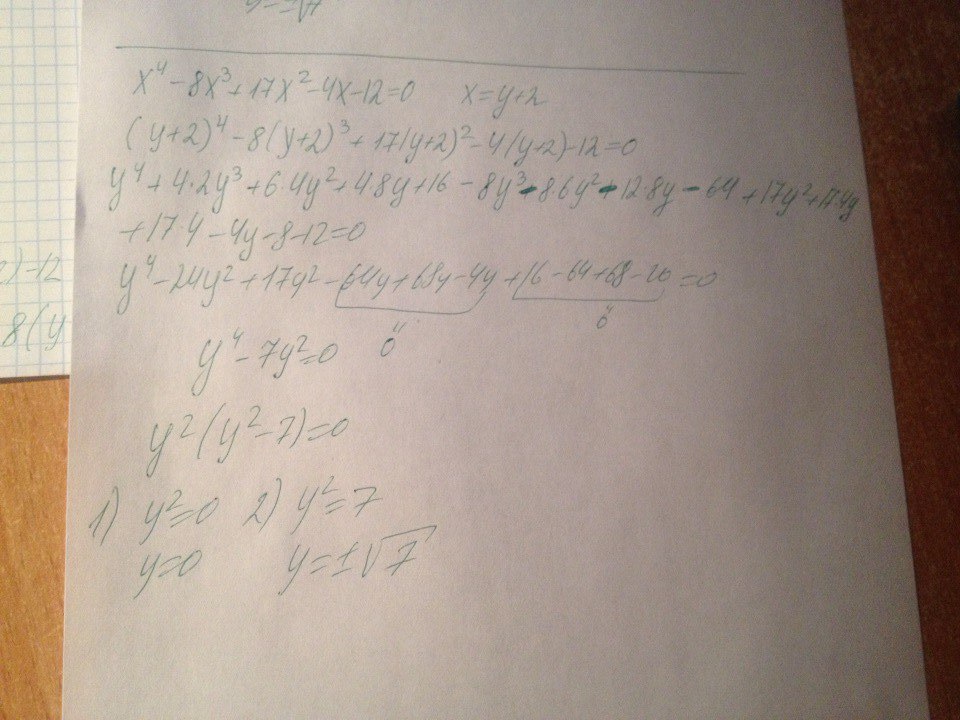 y=±√7
x⁴-8x³+17x²-4x-12=0 x=y+2
(y+2)⁴-8(y+2)³+17(y+2)²-4(y+2)-12=0
y⁴+4·2y³+6·4y²+4·8y+16-8y³-8·6y²-12·8y-64+17y²+17·4y
+17·4-4y-8-12=0
y⁴-24y²+17y²-64y+68y-4y+16-64+68-20=0
0 0
y⁴-7y²=0
y²(y²-7)=0
1) y²=0 2) y²=7
y=0 y=±√7
)-12
8(y